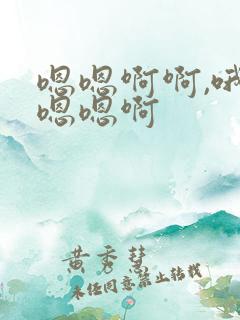 嗯嗯啊啊,哦
嗯嗯啊
黄秀慧
未经同意禁止转载